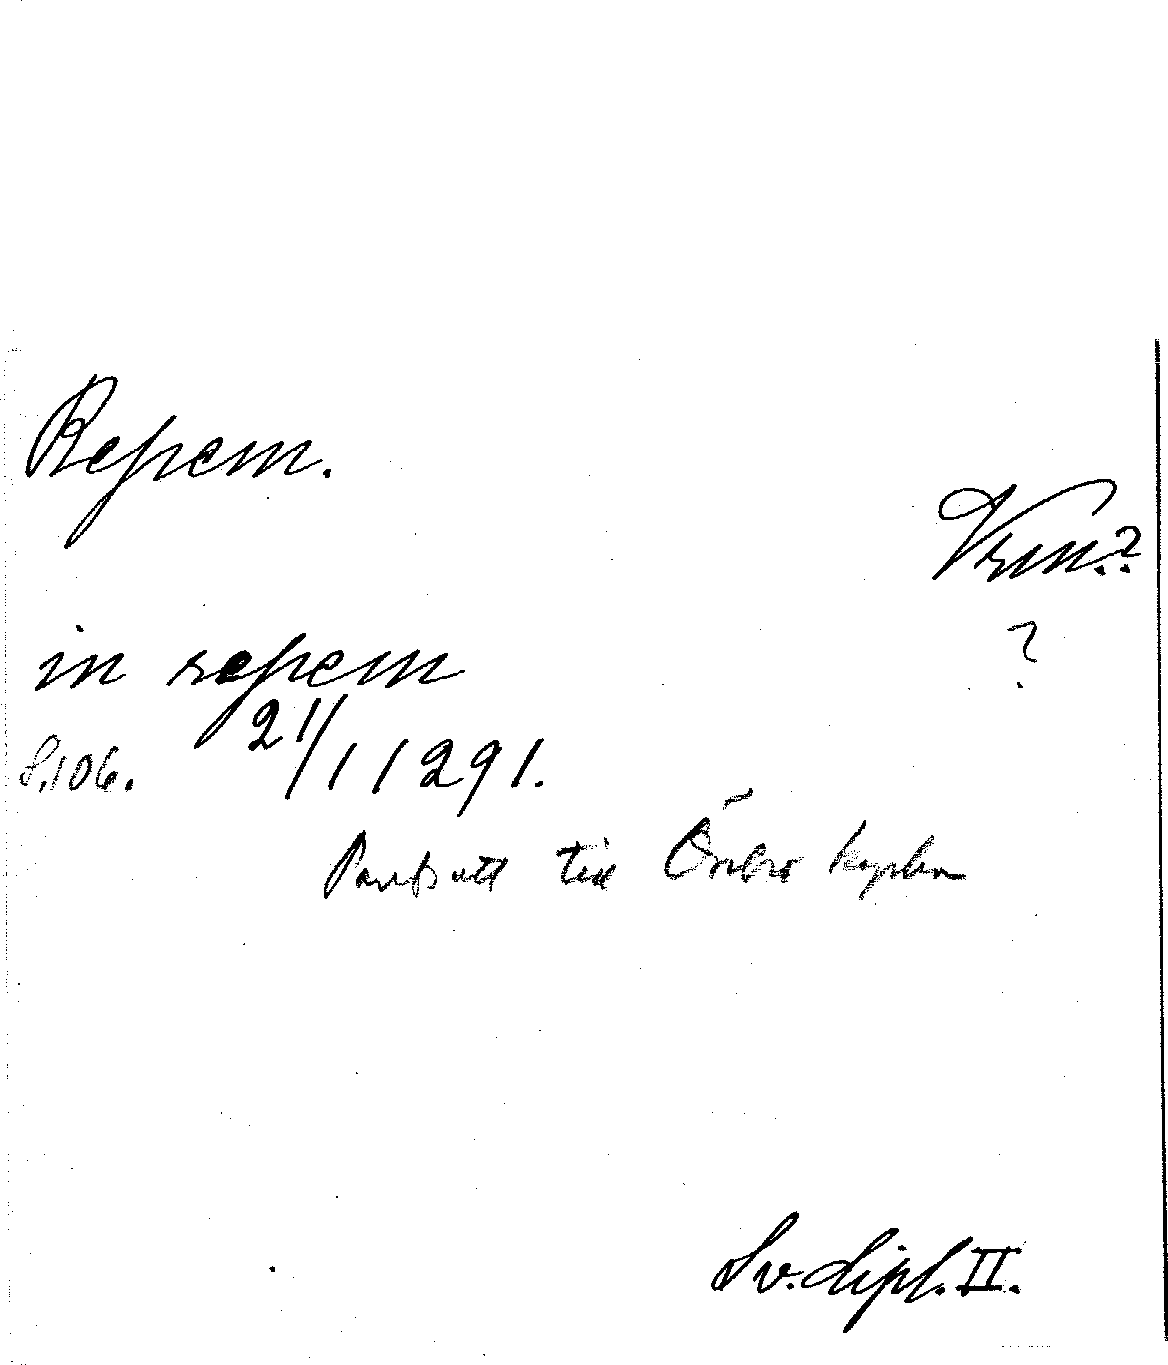 Repem.
Vrm.?
?
in repem
S. 106. 21/1 1291.
Pantsatt till Örebro kyrka
Sv. dipl. II.